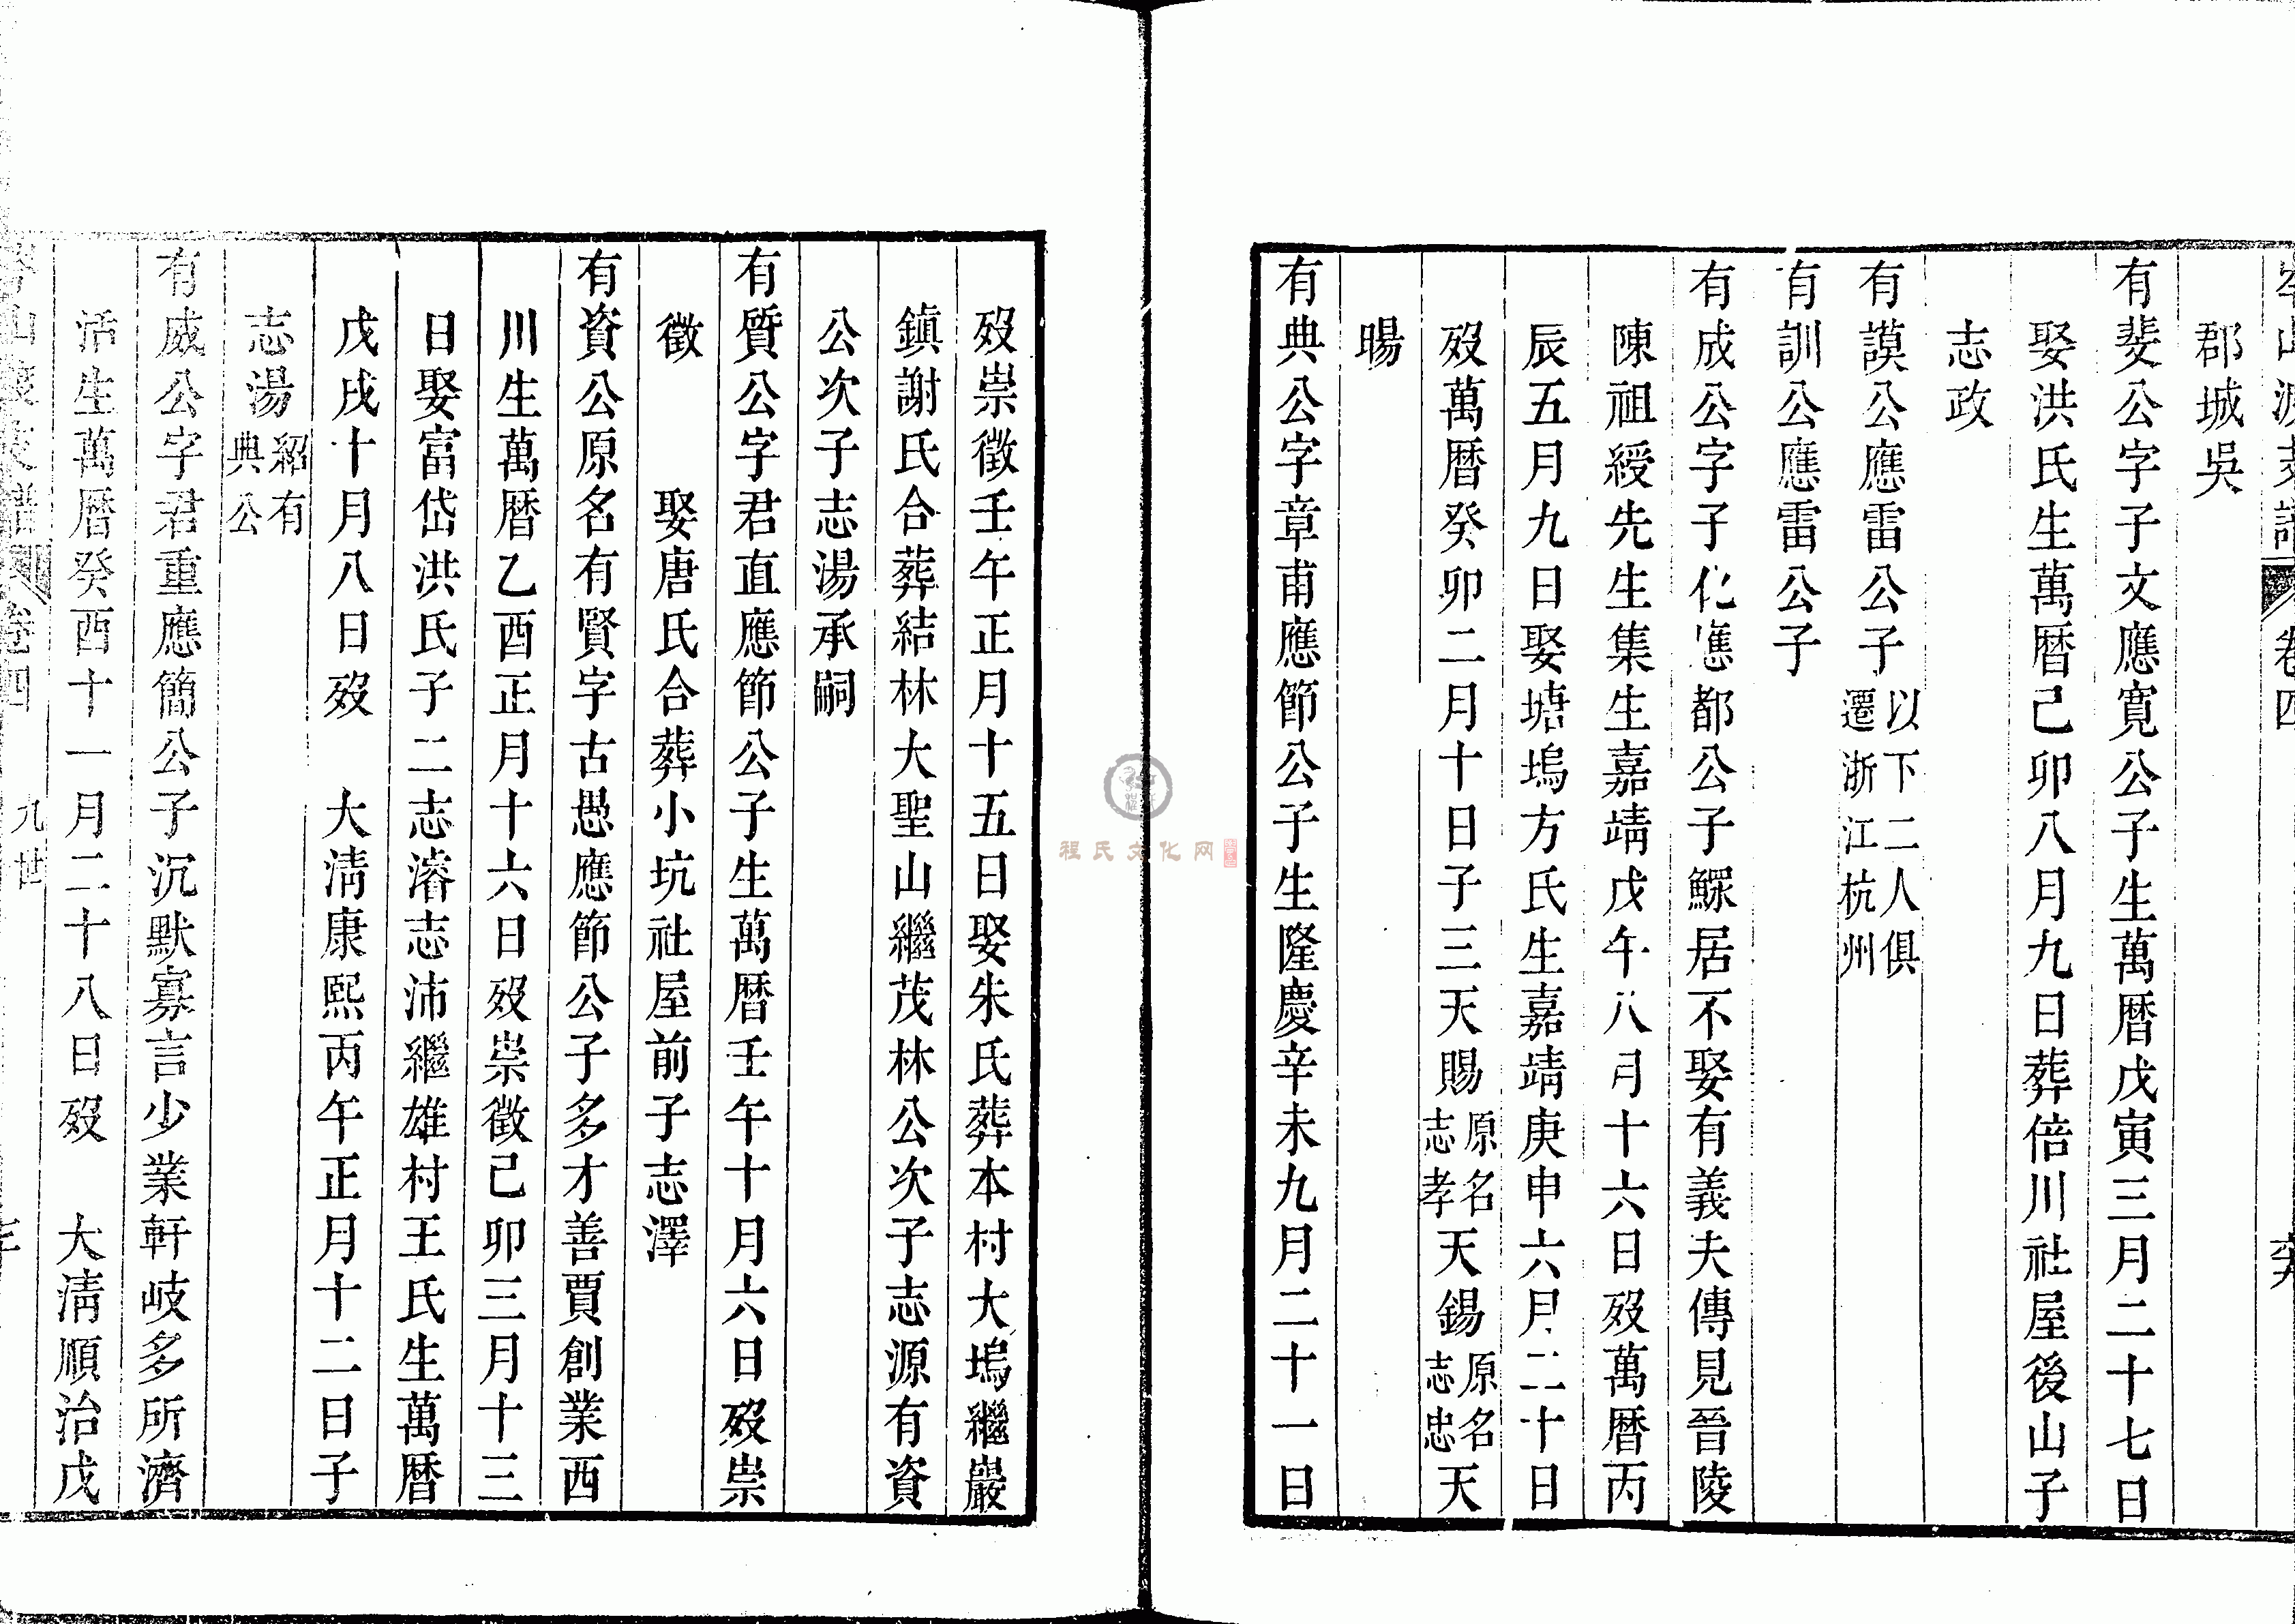 岑山渡支譜 卷四 六
郡城吳
有斐公字子文應寬公子生萬曆戊寅三月二十七日
娶洪氏生萬曆己卯八月九日葬倍川社屋後山子
志政
有謨公應雷公子以下二人俱遷浙江杭州
有訓公應雷公子
有成公字子化應都公子鰥居不娶有義夫傳見晉陵
陳祖綬先生集生嘉靖戊午八月十六日歿萬曆丙
辰五月九日娶塘塢方氏生嘉靖庚申六月二十日
歿萬曆癸卯二月十日子三天賜原名志孝天錫原名志忠天
暘
有典公字章甫應節公子生隆慶辛未九月二十一日
歿崇徵壬午正月十五日娶朱氏葬本村大塢繼巖
鎮謝氏合葬結林大聖山繼茂林公次子志源有資
公次子志湯承嗣
有質公字君直應節公子生萬曆壬午十月六日歿崇
徵 娶唐氏合葬小坑社屋前子志澤
有資公原名有賢字古愚應節公子多才善賈創業西
川生萬曆乙酉正月十六日歿崇徵己卯三月十三
日娶富岱洪氏子二志濬志沛繼雄村王氏生萬曆
戊戌十月八日歿 大清康熙丙午正月十二日子
志湯紹有典公
有威公字君重應簡公子沉默寡言少業軒岐多所濟
活生萬曆癸酉十一月二十八日歿 大清順治戊
岑山渡支譜 卷四 九世
程氏文化网